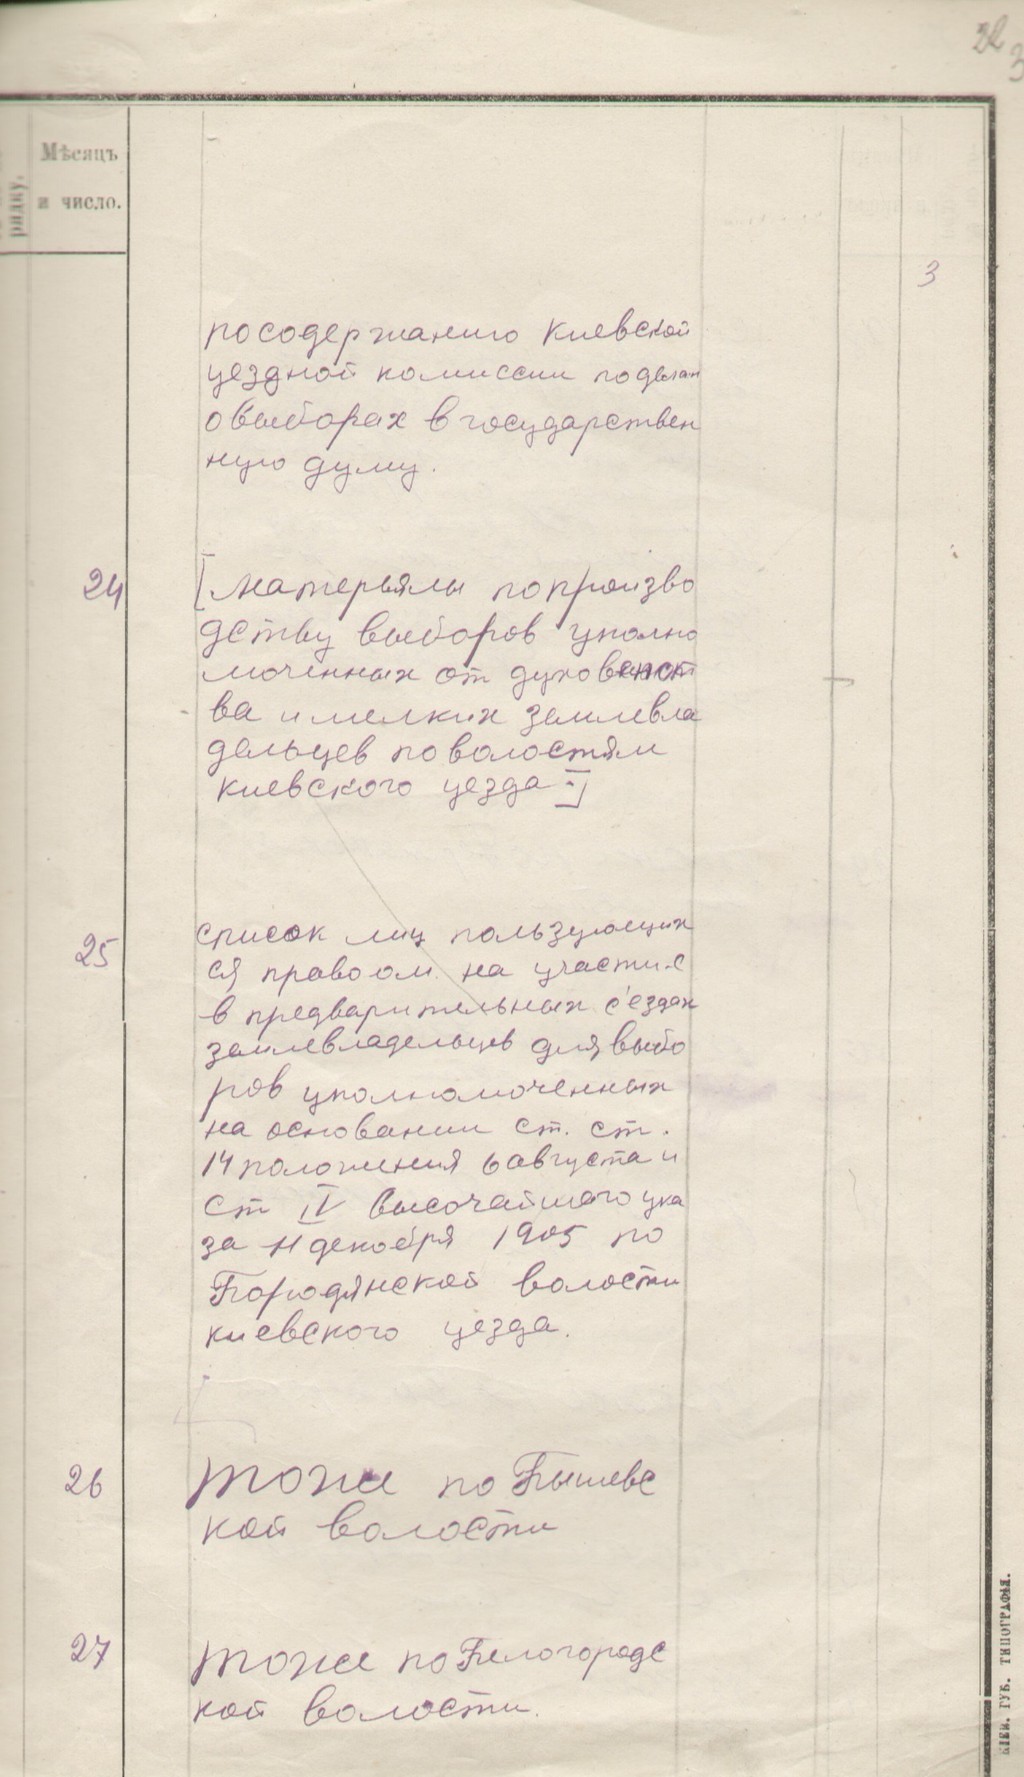 3
Мѣсяцъ
и число.
рядку.
3
по содержанию Киевской
уездной комиссии по делам
о выборах в государствен
ную думу.
24
[матерьялы по произво
дству выборов уполно
моченных от духовенст
ва и мелких землевла
дельцев по волостям
киевского уезда]
25
список лиц пользующих
ся правоом на участие
в предварительных с'ездах
землевладельцев для выбо
ров уполномоченных
на основании ст. ст.
14 положения 6 августа и
ст IV высочайшего ука
за 11 декабря 1905 по
Бородянской волости
киевского уезда.
26
тоже по Бышевс
кой волости
27
тоже по Белогородс
кой волости.
КІЕВ. ГУБ. ТИПОГРАФІЯ.